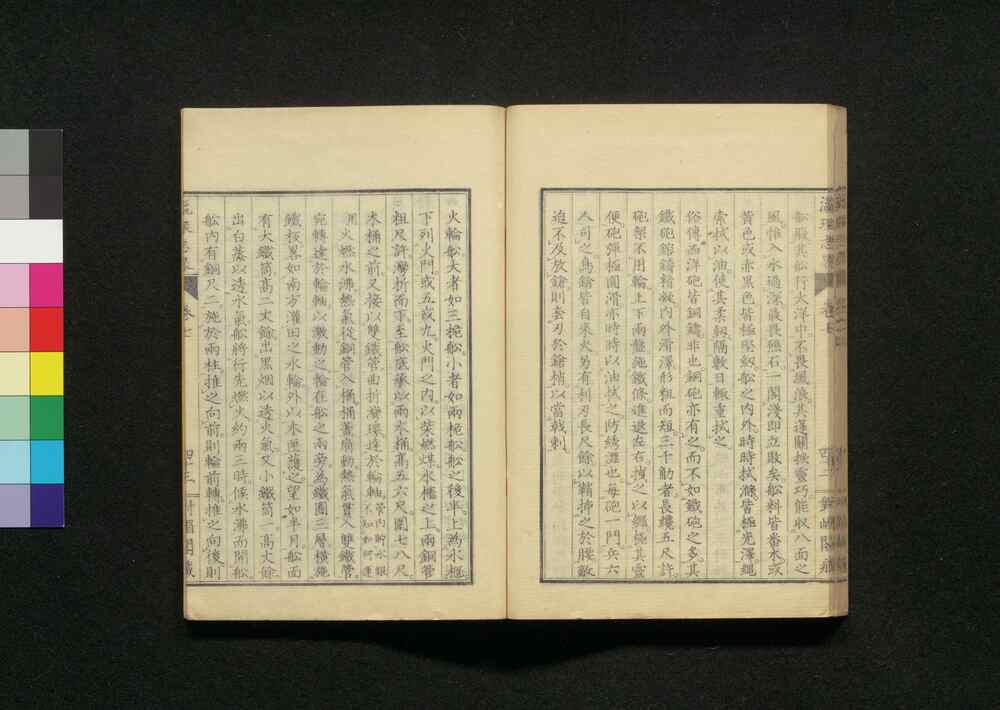 船殿其船行大洋中不畏風浪其篷關捩靈巧能收八面之
風惟入水過深最畏礁石一閣淺即立敗矣船料皆番木或
黃色或赤黑色皆極堅緻船之內外時時拭滌皆極光澤繩
索拭以油使其柔韌隔數日輒重拭之
俗傳西洋砲皆銅鑄非也銅砲亦有之而不如鐵砲之多其
鐵砲鎔鑄精凝內外滑澤形粗而短三千觔者長纔五尺許
砲架不用輪上下兩盤施鐵條進退左右拽之以繩極其靈
便砲彈極圓滑亦時時以油拭之防綉澀也每砲一門兵六
人司之鳥鎗皆自來火另有利刃長尺餘以鞘挿之於腰敵
迫不及放鎗則套刃於鎗梢以當戟刺
瀛環志畧
卷七
火輪船大者如三桅船小者如兩桅船船之後半上為水櫃
下列火門或五或九火門之內以柴燃煤水櫃之上兩銅管
粗尺許灣折而下至船底承以兩水桶高五六尺圍七八尺
木桶之前又接以雙鐵管曲折發環達於輪軸管內貯水銀不知如何運
用火燃水沸熱氣從銅管入桶桶蓋扇動熱氣貫入雙鐵管
宛轉達於輪軸以激動之輪在船之兩旁為鐵圈三層橫施
鐵板畧如南方灌田之水輪外以木匣護之望如半月船面
有大鐵筒高二丈餘出黑烟以透火氣又小鐵筒一高丈餘
出白蒸以透水氣船將行先燃火約兩三時候水沸而開船
船內有銅尺二施於兩柱推之向前則輪前轉推之向後則
卷七